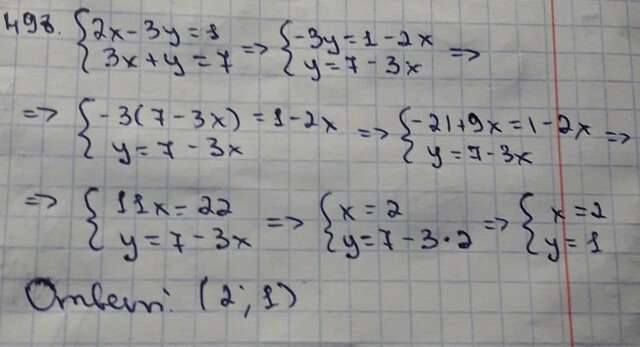 498. {2x-3y=1 {3x+y=7 => {-3y=1-2x {y=7-3x =>
=> {-3(7-3x)=1-2x {y=7-3x => {-21+9x=1-2x {y=7-3x =>
=> {11x=22 {y=7-3x => {x=2 {y=7-3·2 => {x=2 {y=1
Ответ: (2; 1)